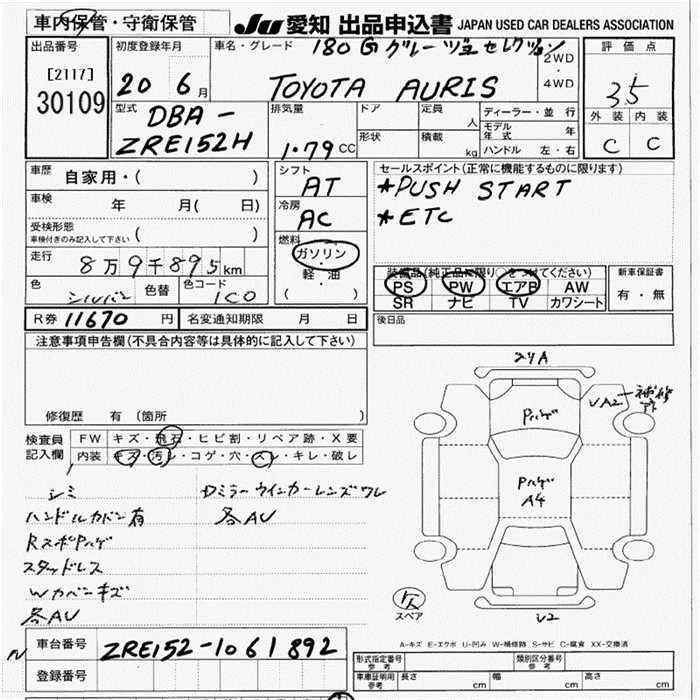 車内保管・守衛保管 JU 愛知 出品申込書 JAPAN USED CAR DEALERS ASSOCIATION
出品番号
[2117]
30109
初度登録年月
20 6月
車名・グレード 180G グレージュ セレクション
TOYOTA AURIS
2WD
・
4WD
評価点
3.5
外装 内装
C C
型式 DBA-
ZRE152H
排気量
1.79 CC
ドア
形状
定員
人
積載
kg
ディーラー・並行
モデル年式 年
ハンドル 左・右
車歴 自家用・( )
車検 年 月( 日)
受検形態
車検付きのみ記入して下さい ( )
走行 8万9千895km
色 シルバー 色替 色コード 1C0
シフト
AT
冷房
AC
燃料
ガソリン
軽・油
( )
セールスポイント(正常に機能するものに限ります)
*PUSH START
*ETC
装備品(純正品に限り○をつけてください)
PS PW エアB AW
SR ナビ TV カワシート
新車保証書
有・無
R券 11670 円 名変通知期限 月 日
後日品
注意事項申告欄(不具合内容等は具体的に記入して下さい)
修復歴 有 (箇所 )
検査員記入欄
FW キズ・飛石・ヒビ割・リペア跡・X要
内装 キズ・汚レ・コゲ・穴・スレ・キレ・破レ
シミ
ハンドルカバー有
RスポPハゲ
スタッドレス
Wカバーキズ
各AU
Dミラーウインカーレンズワレ
各AU
Pハゲ
Pハゲ
A4
UA2
スペア
A-キズ E-エクボ U-凹み W-補修跡 S-サビ C-腐食 XX-交換済
車台番号 ZRE152-1061892
登録番号
形式指定番号
参考
類別区分番号
参考
車庫証明用
参考
長さ cm 幅 cm 高さ cm